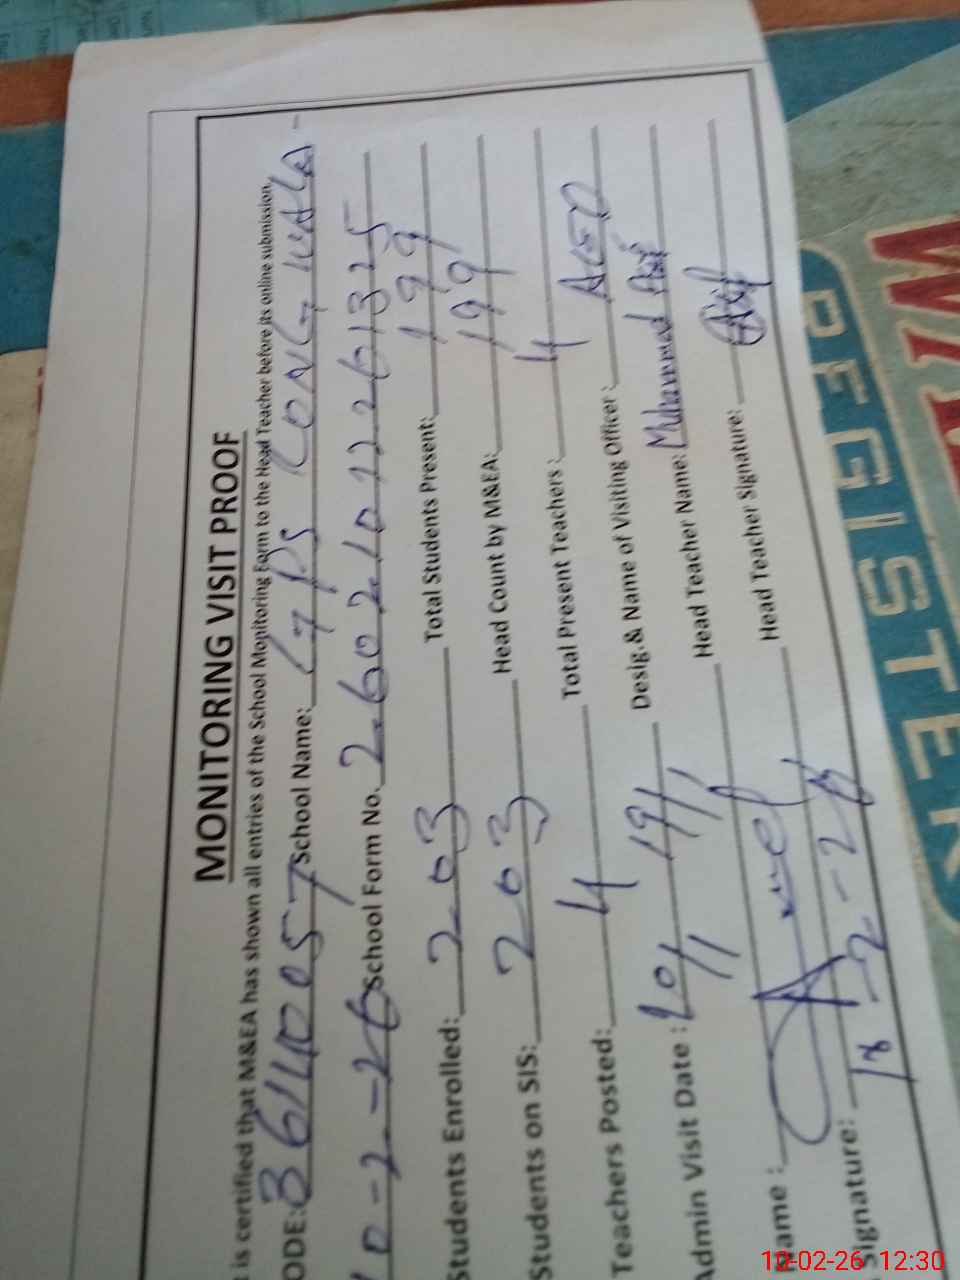 MONITORING VISIT PROOF
is certified that M&EA has shown all entries of the School Monitoring Form to the Head Teacher before its online submission,
ODE: 36140057 School Name: GPS CONG WALA
10-2-26 School Form No. 26021012261325
Students Enrolled: 203 Total Students Present: 199
Students on SIS: 203 Head Count by M&EA: 199
Teachers Posted: 4 Total Present Teachers: 4
Admin Visit Date: Desig.& Name of Visiting Officer: AEO
Name: Head Teacher Name: Muhammad Asif
Signature: Head Teacher Signature: Asif
-2-26
REGISTER
10-02-26 12:30